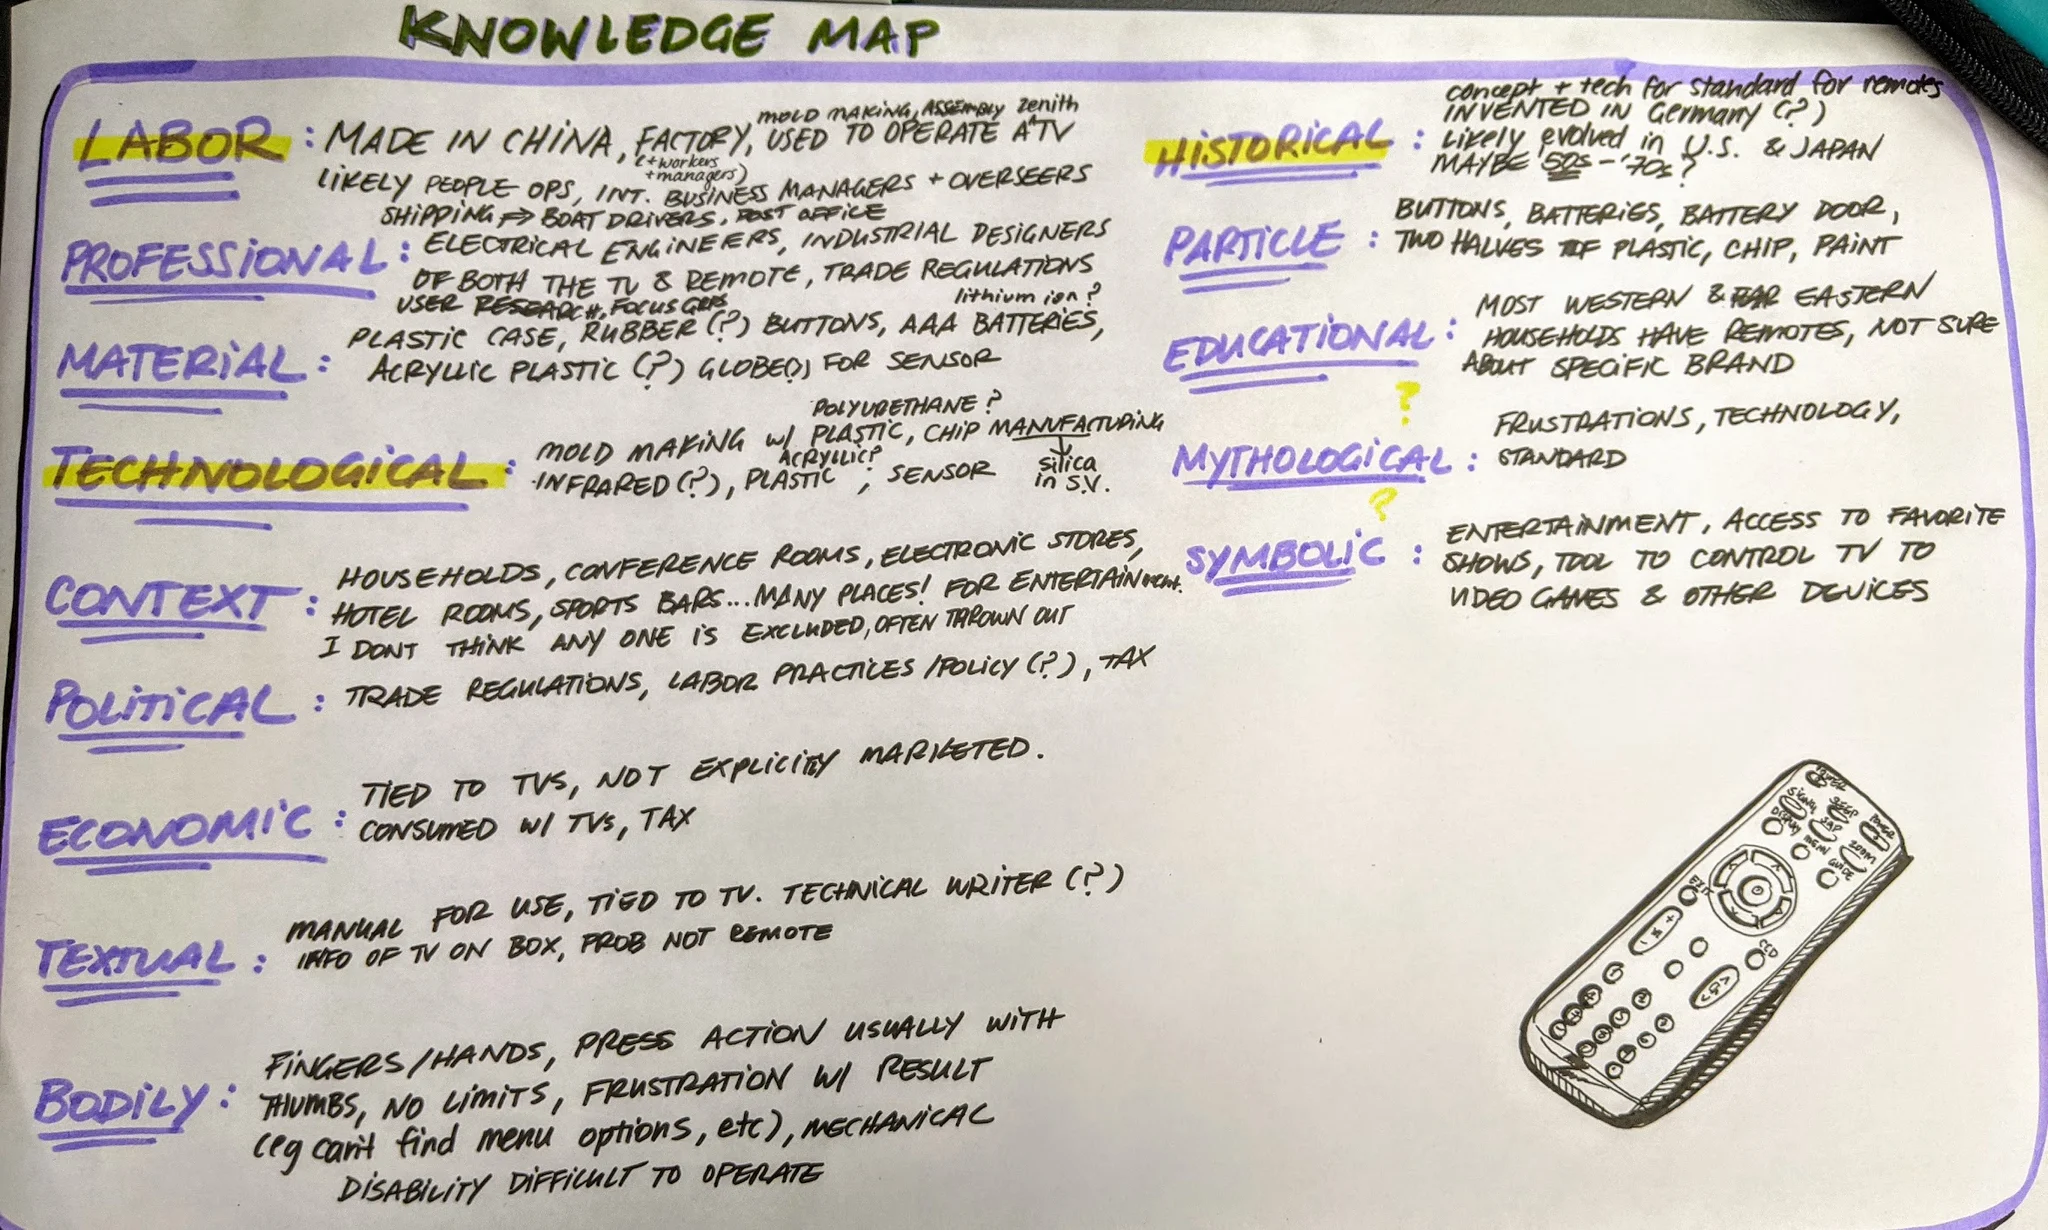 KNOWLEDGE MAP
mold making, ASSEMBLY zenith
LABOR : MADE IN CHINA, FACTORY, USED TO OPERATE A TV
(+workers
+managers)
LIKELY PEOPLE OPS, INT. BUSINESS MANAGERS + OVERSEERS
SHIPPING => BOAT DRIVERS, POST OFFICE
PROFESSIONAL : ELECTRICAL ENGINEERS, INDUSTRIAL DESIGNERS
OF BOTH THE TV & REMOTE, TRADE REGULATIONS
USER RESEARCH, FOCUS GRPS
lithium ion?
MATERIAL : PLASTIC CASE, RUBBER (?) BUTTONS, AAA BATTERIES,
ACRYLLIC PLASTIC (?) GLOBE(?) FOR SENSOR
POLYURETHANE?
TECHNOLOGICAL : MOLD MAKING w/ PLASTIC, CHIP MANUFACTURING
ACRYLLIC?
INFRARED (?), PLASTIC, SENSOR
silica
in S.V.
CONTEXT : HOUSEHOLDS, CONFERENCE ROOMS, ELECTRONIC STORES,
HOTEL ROOMS, SPORTS BARS... MANY PLACES! FOR ENTERTAINment.
I DONT THINK ANY ONE IS EXCLUDED, OFTEN THROWN OUT
POLITICAL : TRADE REGULATIONS, LABOR PRACTICES /POLICY (?), TAX
ECONOMIC : TIED TO TVS, NOT EXPLICITLY MARKETED.
CONSUMED w/ TVs, TAX
TEXTUAL : MANUAL FOR USE, TIED TO TV. TECHNICAL WRITER (?)
INFO OF TV ON BOX, PROB NOT REMOTE
BODILY : FINGERS/HANDS, PRESS ACTION USUALLY WITH
THUMBS, NO LIMITS, FRUSTRATION w/ RESULT
(eg can't find menu options, etc), MECHANICAL
DISABILITY DIFFICULT TO OPERATE
concept + tech for standard for remotes
INVENTED IN Germany (?)
HISTORICAL : Likely evolved in U.S. & JAPAN
MAYBE 50s - '70s?
PARTICLE : BUTTONS, BATTERIES, BATTERY DOOR,
TWO HALVES OF PLASTIC, CHIP, PAINT
EDUCATIONAL : MOST WESTERN & EASTERN
HOUSEHOLDS HAVE REMOTES, NOT SURE
ABOUT SPECIFIC BRAND
?
MYTHOLOGICAL : FRUSTRATIONS, TECHNOLOGY,
STANDARD
?
SYMBOLIC : ENTERTAINMENT, ACCESS TO FAVORITE
SHOWS, TOOL TO CONTROL TV TO
VIDEO GAMES & OTHER DEVICES
POWER
POWER
ZOOM
MENU
GUIDE
EXIT